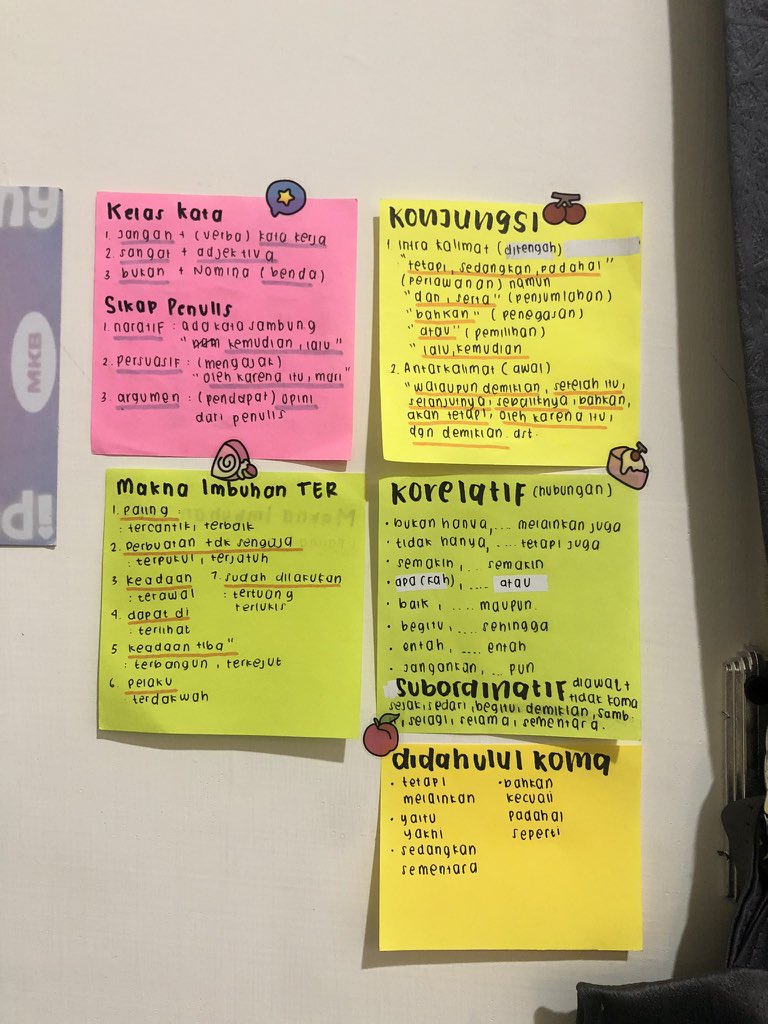 ny
MKB
ip
Kelas Kata
1. Jangan + (verba) kata kerja
2. sangat + adjektiva
3 bukan + Nomina (benda)
Sikap Penulis
1. naratif : ada kata sambung
" kemudian, lalu"
2. Persuasif : (mengajak)
"oleh karena itu, mari"
3. argumen : (pendapat) opini
dari penulis
Konjungsi
1 Intra kalimat (ditengah)
"tetapi, sedangkan, padahal"
(perlawanan) namun
"dan, serta" (penjumlahan)
"bahkan" (penegasan)
"atau" (pemilihan)
"lalu, kemudian
2. Antarkalimat (awal)
"walaupun demikian, setelah itu,
selanjutnya, sebaliknya, bahkan,
akan tetapi, oleh karena itu,
dgn demikian. dst.
Makna Imbuhan TER
1. Paling :
: tercantik, terbaik
2. Perbuatan tdk sengaja
: terpukul, terjatuh
3 keadaan
: terawat
4. dapat di
: terlihat
5 keadaan tiba"
: terbangun, terkejut
6. Pelaku
: terdakwah
7. sudah dilakukan
: tertuang
terlukis
Korelatif (hubungan)
• bukan hanya, ... melainkan juga
• tidak hanya, .... tetapi juga
• semakin, ... semakin
• apa (kah), .... atau
• baik, .... maupun.
• begitu, .... sehingga
• entah, .... entah
• jangankan, ... pun
Subordinatif diawal +
tidak koma
sejak, sedari, begitu, demikian, samb.
, selagi, selama, sementara.
didahului koma
• tetapi
melainkan
• yaitu
yakni
• sedangkan
sementara
• bahkan
kecuali
padahal
seperti